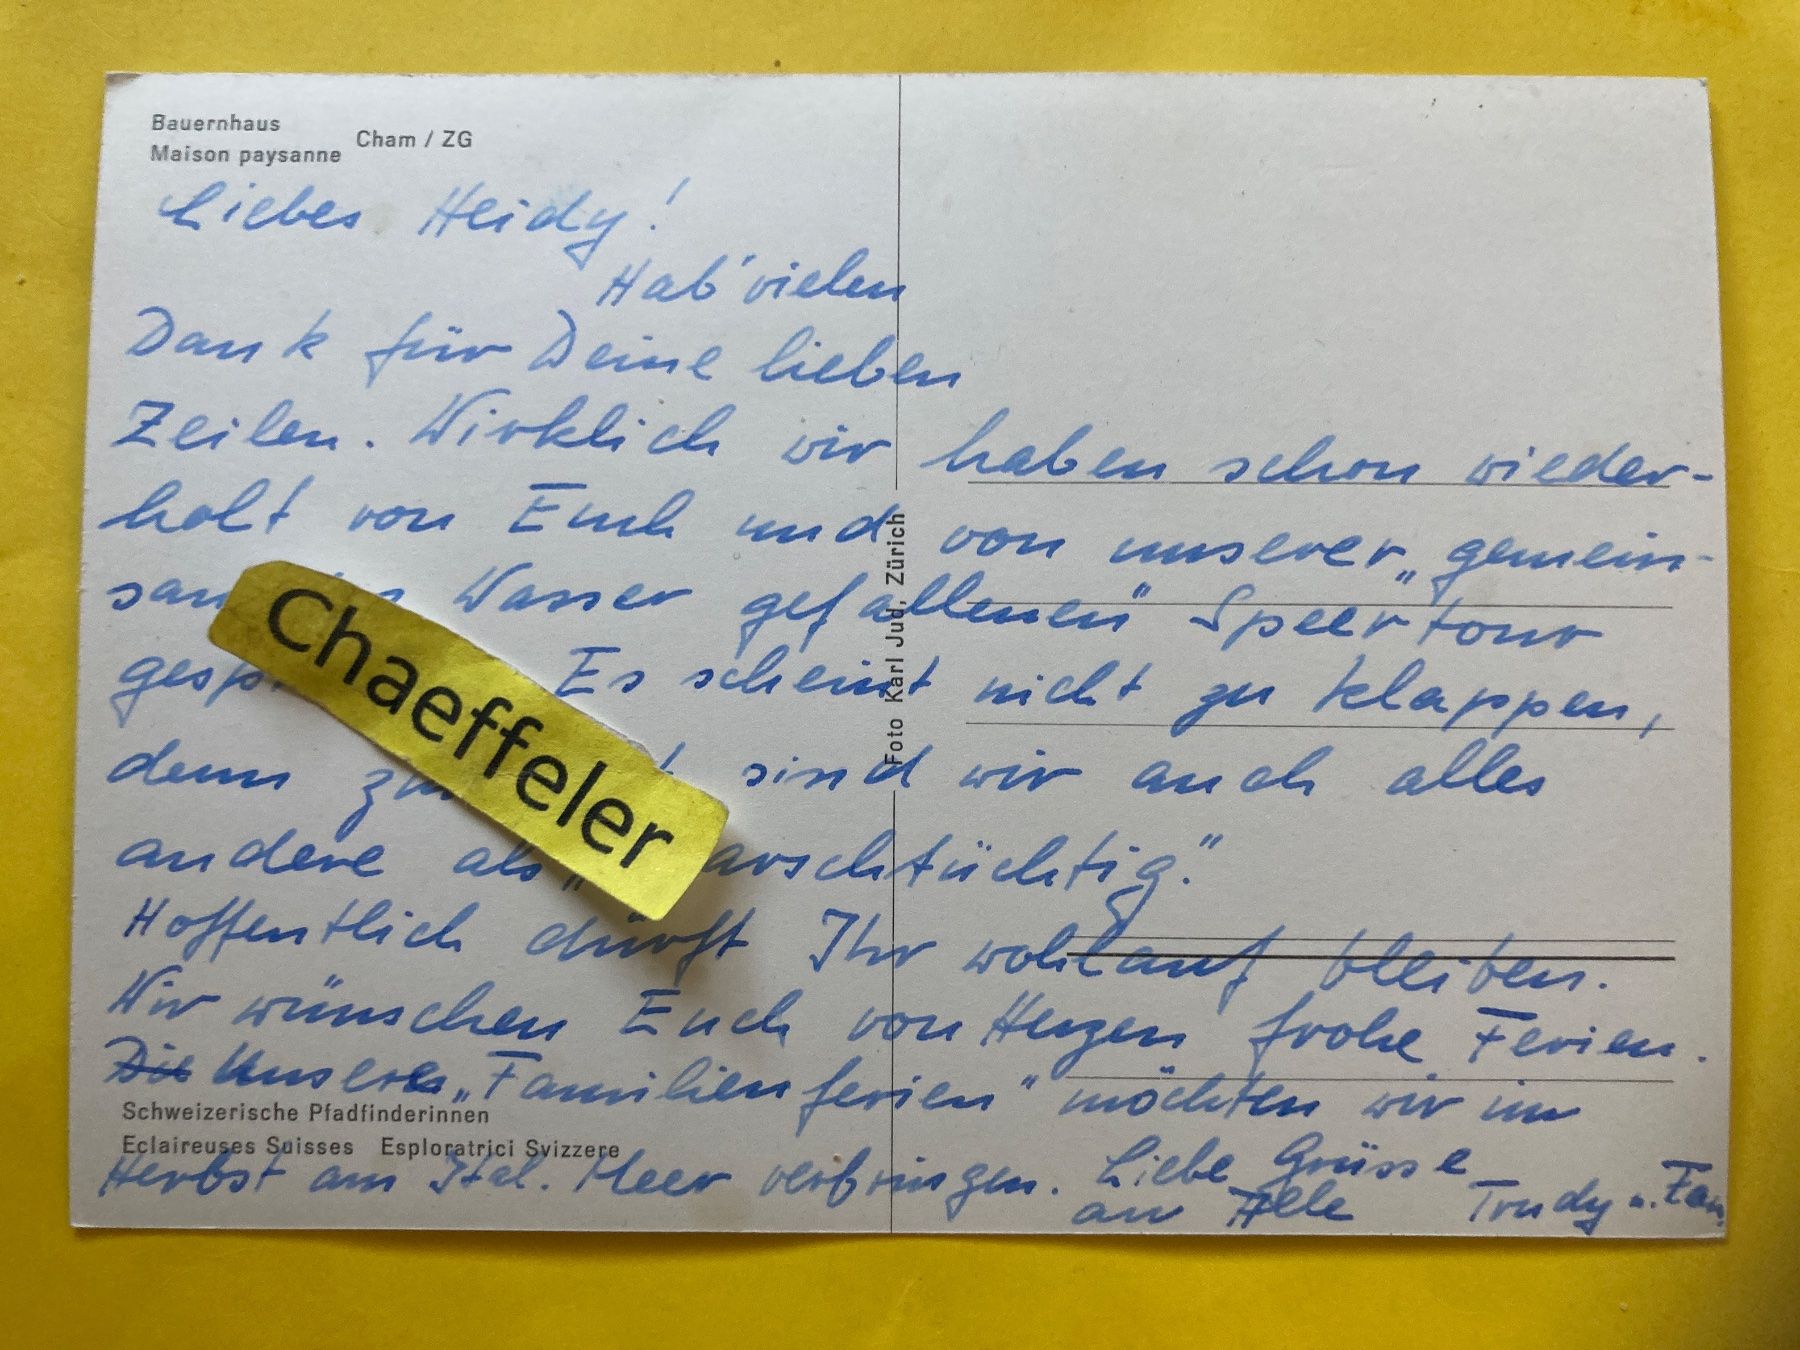 Bauernhaus
Maison paysanne
Cham / ZG
Liebes Heidy!
Hab' vielen
Dank für Deine lieben
Zeilen. Wirklich wir haben schon wieder-
holt von Euch und von unserer „gemein-
Wasser gefallenen" Speertour
Es scheint nicht zu klappen,
denn sind wir auch alles
andere als „ arschtüchtig."
Hoffentlich dürft Ihr wohlauf bleiben.
Wir wünschen Euch von Herzen frohe Ferien.
Die Unsere „Familienferien" möchten wir im
Herbst am Ital. Meer verbringen. Liebe Grüsse
an Alle Trudy u. Fam.
Chaeffeler
Foto Karl Jud, Zürich
Schweizerische Pfadfinderinnen
Eclaireuses Suisses Esploratrici Svizzere